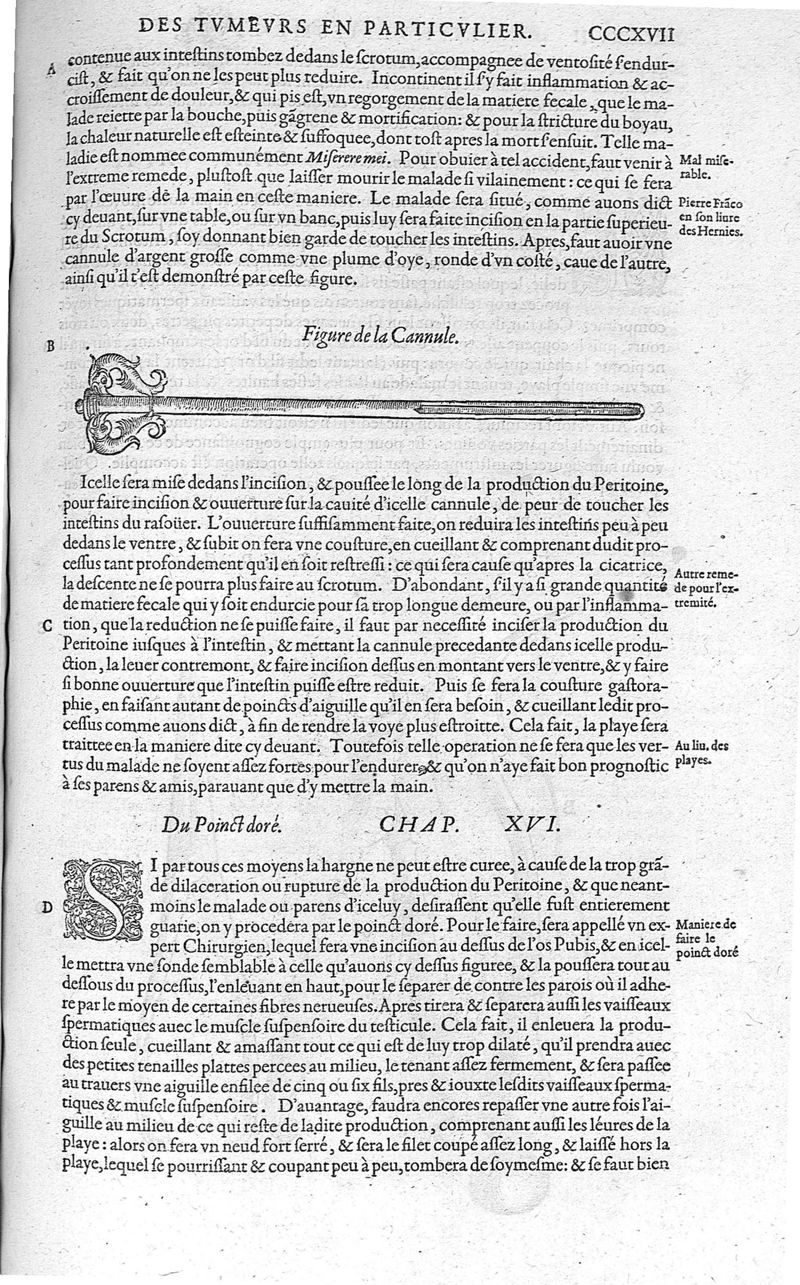 DES TVMEVRS EN PARTICVLIER. CCCXVII
A
contenue aux inteſtins tombez dedans le ſcrotum, accompagnee de ventoſité ſ'endur-
ciſt, & fait qu'on ne les peut plus reduire. Incontinent il ſ'y fait inflammation & ac-
croiſſement de douleur, & qui pis eſt, vn regorgement de la matiere fecale, que le ma-
lade reiette par la bouche, puis gãgrene & mortification: & pour la ſtricture du boyau,
la chaleur naturelle eſt eſteinte & ſuffoquee, dont toſt apres la mort ſ'enſuit. Telle ma-
ladie eſt nommee communément Miſerere mei. Pour obuier à tel accident, faut venir à
l'extreme remede, pluſtoſt que laiſſer mourir le malade ſi vilainement: ce qui ſe fera
par l'œuure de la main en ceſte maniere. Le malade ſera ſitué, comme auons dict
cy deuant, ſur vne table, ou ſur vn banc, puis luy ſera faite inciſion en la partie ſuperieu-
re du Scrotum, ſoy donnant bien garde de toucher les inteſtins. Apres, faut auoir vne
cannule d'argent groſſe comme vne plume d'oye, ronde d'vn coſté, caue de l'autre,
ainſi qu'il t'eſt demonſtré par ceſte figure.
Mal miſe-
rable.
Pierre Frãco
en ſon liure
des Hernies.
B
Figure de la Cannule.
Icelle ſera miſe dedans l'inciſion, & pouſſee le long de la production du Peritoine,
pour faire inciſion & ouuerture ſur la cauité d'icelle cannule, de peur de toucher les
inteſtins du raſoüer. L'ouuerture ſuffiſamment faite, on reduira les inteſtins peu à peu
dedans le ventre, & ſubit on fera vne couſture, en cueillant & comprenant dudit pro-
ceſſus tant profondement qu'il en ſoit reſtreſſi: ce qui ſera cauſe qu'apres la cicatrice,
la deſcente ne ſe pourra plus faire au ſcrotum. D'abondant, ſ'il y a ſi grande quantité
de matiere fecale qui y ſoit endurcie pour ſa trop longue demeure, ou par l'inflamma-
C
tion, que la reduction ne ſe puiſſe faire, il faut par neceſſité inciſer la production du
Peritoine iuſques à l'inteſtin, & mettant la cannule precedante dedans icelle produ-
ction, la leuer contremont, & faire inciſion deſſus en montant vers le ventre, & y faire
ſi bonne ouuerture que l'inteſtin puiſſe eſtre reduit. Puis ſe fera la couſture gaſtora-
phie, en faiſant autant de poincts d'aiguille qu'il en ſera beſoin, & cueillant ledit pro-
ceſſus comme auons dict, à fin de rendre la voye plus eſtroitte. Cela fait, la playe ſera
traittee en la maniere dite cy deuant. Toutefois telle operation ne ſe fera que les ver-
tus du malade ne ſoyent aſſez fortes pour l'endurer, & qu'on n'aye fait bon prognoſtic
à ſes parens & amis, parauant que d'y mettre la main.
Autre reme-
de pour l'ex-
tremité.
Au liu. des
playes.
Du Poinct doré. CHAP. XVI.
SI par tous ces moyens la hargne ne peut eſtre curee, à cauſe de la trop grã-
de dilaceration ou rupture de la production du Peritoine, & que neant-
D
moins le malade ou parens d'iceluy, deſiraſſent qu'elle fuſt entierement
guarie, on y procedera par le poinct doré. Pour le faire, ſera appellé vn ex-
pert Chirurgien, lequel fera vne inciſion au deſſus de l'os Pubis, & en icel-
le mettra vne ſonde ſemblable à celle qu'auons cy deſſus figuree, & la pouſſera tout au
deſſous du proceſſus, l'enleuant en haut, pour le ſeparer de contre les parois où il adhe-
re par le moyen de certaines fibres nerueuſes. Apres tirera & ſeparera auſſi les vaiſſeaux
ſpermatiques auec le muſcle ſuſpenſoire du teſticule. Cela fait, il enleuera la produ-
ction ſeule, cueillant & amaſſant tout ce qui eſt de luy trop dilaté, qu'il prendra auec
des petites tenailles plattes percees au milieu, le tenant aſſez fermement, & ſera paſſee
au trauers vne aiguille enfilee de cinq ou ſix fils, pres & iouxte leſdits vaiſſeaux ſperma-
tiques & muſcle ſuſpenſoire. D'auantage, faudra encores repaſſer vne autre fois l'ai-
guille au milieu de ce qui reſte de ladite production, comprenant auſſi les léures de la
playe: alors on fera vn neud fort ſerré, & ſera le filet coupé aſſez long, & laiſſé hors la
playe, lequel ſe pourriſſant & coupant peu à peu, tombera de ſoymeſme: & ſe faut bien
Maniere de
faire le
poinct doré